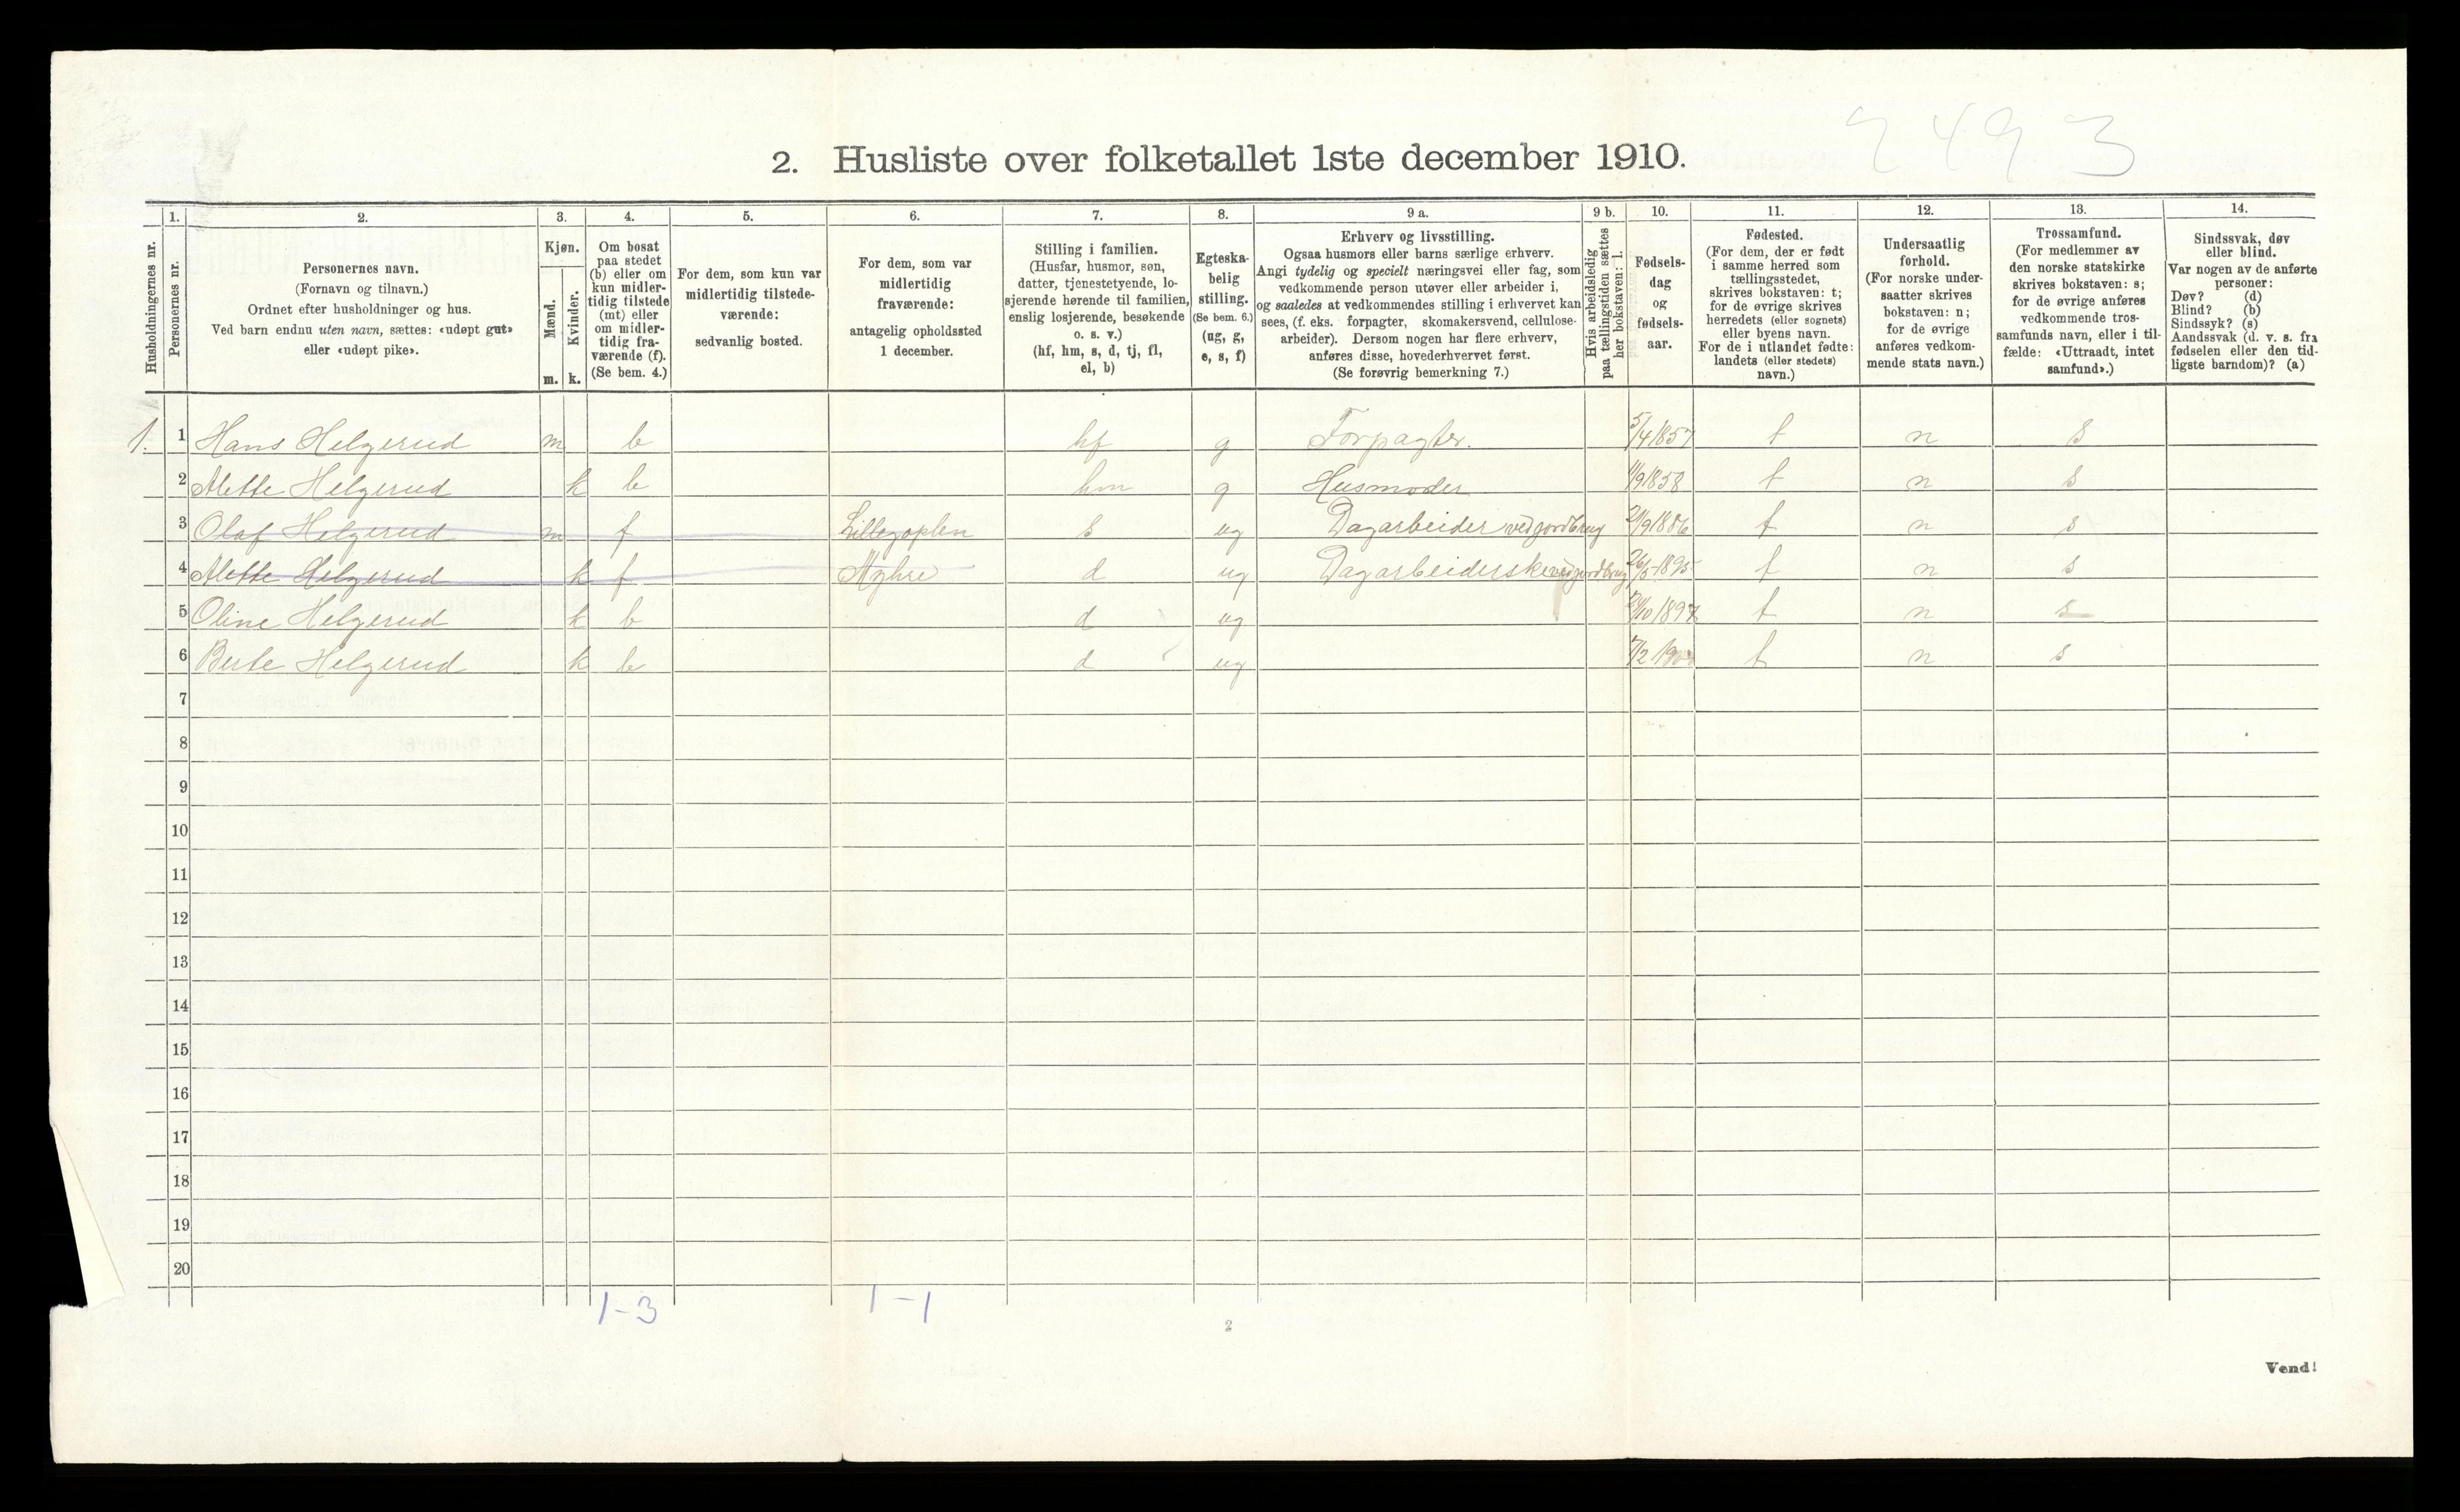 2493
2. Husliste over folketallet 1ste december 1910.
Husholdningernes nr.
1.
Personernes nr.
2.
Personernes navn.
(Fornavn og tilnavn.)
Ordnet efter husholdninger og hus.
Ved barn endnu uten navn, sættes: «udøpt gut»
eller «udøpt pike».
3.
Kjøn.
Mænd.
Kvinder.
m. k.
4.
Om bosat
paa stedet
(b) eller om
kun midler-
tidig tilstede
(mt) eller
om midler-
tidig fra-
værende (f).
(Se bem. 4.)
5.
For dem, som kun var
midlertidig tilstede-
værende:
sedvanlig bosted.
6.
For dem, som var
midlertidig
fraværende:
antagelig opholdssted
1 december.
7.
Stilling i familien.
(Husfar, husmor, søn,
datter, tjenestetyende, lo-
sjerende hørende til familien,
enslig losjerende, besøkende
o. s. v.)
(hf, hm, s, d, tj, fl,
el, b)
8.
Egteska-
belig
stilling.
(Se bem. 6.)
(ug, g,
e, s, f)
9 a.
Erhverv og livsstilling.
Ogsaa husmors eller barns særlige erhverv.
Angi tydelig og specielt næringsvei eller fag, som
vedkommende person utøver eller arbeider i,
og saaledes at vedkommendes stilling i erhvervet kan
sees, (f. eks. forpagter, skomakersvend, cellulose-
arbeider). Dersom nogen har flere erhverv,
anføres disse, hovederhvervet først.
(Se forøvrig bemerkning 7.)
9 b.
Hvis arbeidsledig
paa tællingstiden sættes
her bokstaven: l.
10.
Fødsels-
dag
og
fødsels-
aar.
11.
Fødested.
(For dem, der er født
i samme herred som
tællingsstedet,
skrives bokstaven: t;
for de øvrige skrives
herredets (eller sognets)
eller byens navn.
For de i utlandet fødte:
landets (eller stedets)
navn.)
12.
Undersaatlig
forhold.
(For norske under-
saatter skrives
bokstaven: n;
for de øvrige
anføres vedkom-
mende stats navn.)
13.
Trossamfund.
(For medlemmer av
den norske statskirke
skrives bokstaven: s;
for de øvrige anføres
vedkommende tros-
samfunds navn, eller i til-
fælde: «Uttraadt, intet
samfund».)
14.
Sindssvak, døv
eller blind.
Var nogen av de anførte
personer:
Døv? (d)
Blind? (b)
Sindssyk? (s)
Aandssvak (d. v. s. fra
fødselen eller den tid-
ligste barndom)? (a)
1. 1 Hans Helgerud m b hf g Forpagter. 5/4 1857 t n s
2 Mette Helgerud k b hm g Husmoder 1/9 1858 t n s
3 Olaf Helgerud m f s ug Dagarbeider ved jordbrug 1886 t n s
4 Mette Helgerud k f d ug Dagarbeiderske ved jordbrug 26/5 1895 t n s
5 Oline Helgerud k b d ug 1897 t n s
6 Berte Helgerud k b d ug 7/2 t n s
7
8
9
10
11
12
13
14
15
16
17
18
19
20
1-3 1-1
2
Vend!